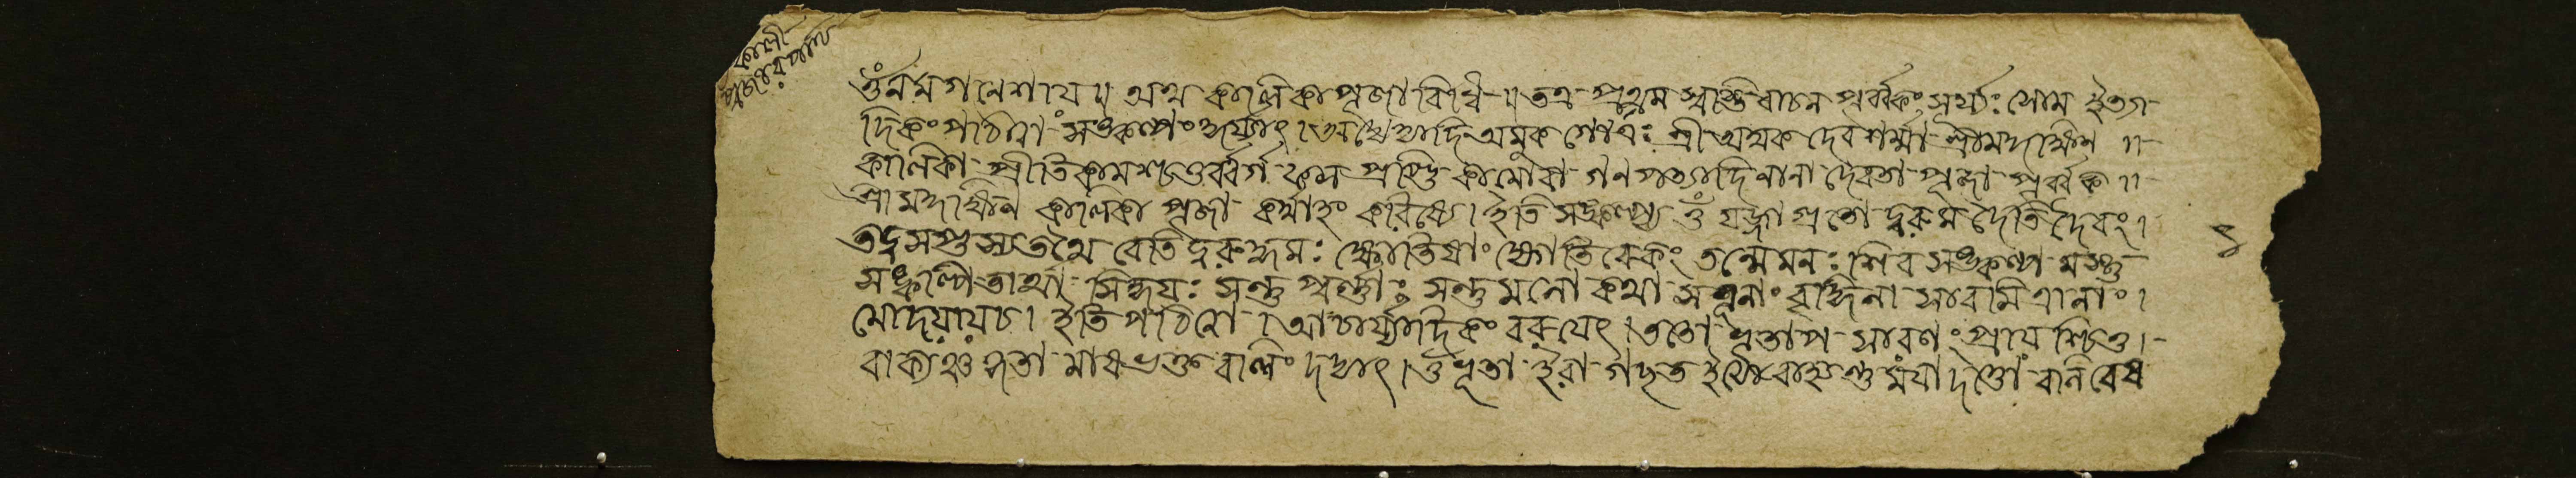 কালী
পূজার পদ্য
ওঁ নম গনেশায় ॥ অথ কালিকা পূজা বিধি ॥ তত্র প্রথম স্বস্তি বাচন পূর্ব্বকং সূর্য্যঃ সোম ইত্যা
দিকং পঠিত্বা সঙ্কল্পং কুর্য্যাৎ । অদ্যেত্যাদি অমুক গোত্রঃ শ্রী অমুক দেবশর্ম্মা শ্রীমদ্দক্ষিণ ॥
কালিকা প্রীতি কামশ্চতুর্ব্বর্গ ফল প্রাপ্তি কামোবা গনপত্যাদি নানা দেবতা পূজা পূর্ব্বক ॥
শ্রীমদ্দক্ষিন কালিকা পূজা কর্ম্মাহং করিষ্যে । ইতি সঙ্কল্প্য ওঁ যজ্জাগ্রতো দূরমুদৈতি দৈবং ।
তদু সুপ্তস্য তথৈ বেতি দূরঙ্গমঃ জ্যোতিষাং জ্যোতিরেকং তন্মেমনঃ শিব সঙ্কল্প মস্তু
সঙ্কল্পীতার্থা সিদ্ধয়ঃ সন্তু পূর্ণ্ণাঃ সন্তু মনোরথা সত্রূনাং বুদ্ধিনা সাবমিত্রানাং ।
মোদয়ায়চ । ইতি পঠিত্বা । আচার্য্যাদিকং বরয়েৎ । ততো ভূতাপ সারণং প্রায়শ্চিত্ত ।
বাক্যঞ্চ কৃত্বা মাষভক্ত বলিং দদ্যাৎ । ওঁ ভূতা ইহা গছত
১